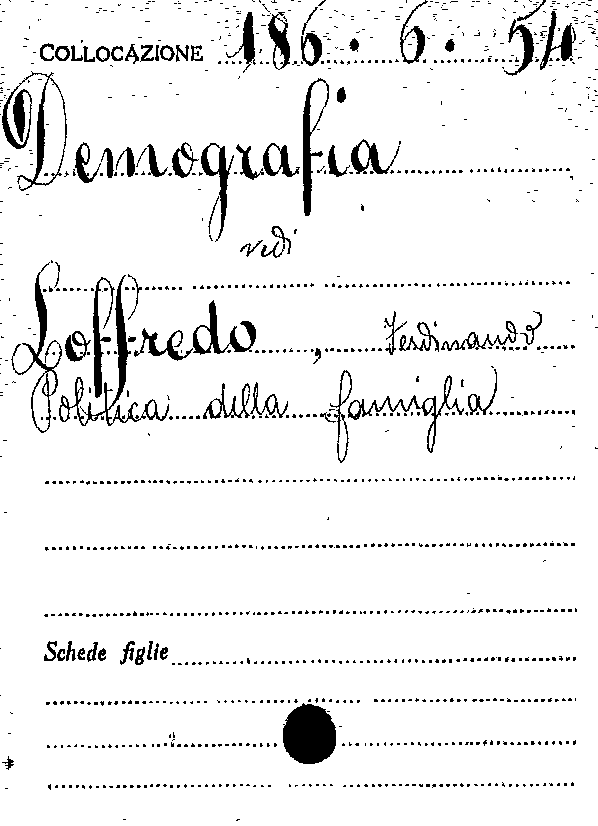 COLLOCAZIONE 186. 6. 54
Demografia
vedi
Loffredo, Ferdinando
Politica della famiglia
Schede figlie